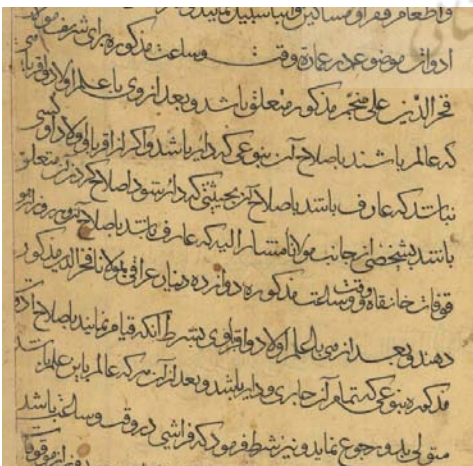 و اطعام فقرا و مساکین
ادوات موضوعه در عمارة وقت و ساعت مذکوره برای شریف مولانا
فخر الدین علی منجم مذکور متعلق باشد و بعد از وی با علم اولاد و اقربا
که عالم باشند باصلاح آن بنوعی که دایر باشد و اگر از اقربا فی اولاد او کسی
نباشد که عارف باشند باصلاح آن بحیثیتی که دایر شود اصلاح کردن آن متعلق
باشد بشخصی از جانب مولانا مشار الیه که عارف باشد باصلاح آن و هر روز از
قوفات خانقاه و وقت و ساعت مذکوره دوازده دینار عراقی بمولانا فخر الدین مذکور
دهند و بعد از وی با علم اولاد و اقربای وی بشرط آنکه قیام نمایند باصلاح ادوات
مذکوره بنوعی که تمام آن جاری و دایر باشد و بعد از آن هر که عالم باین علم باشد
متولی بدو رجوع نماید و نیز شرط فرمود که فراشی در وقت و ساعت باشد